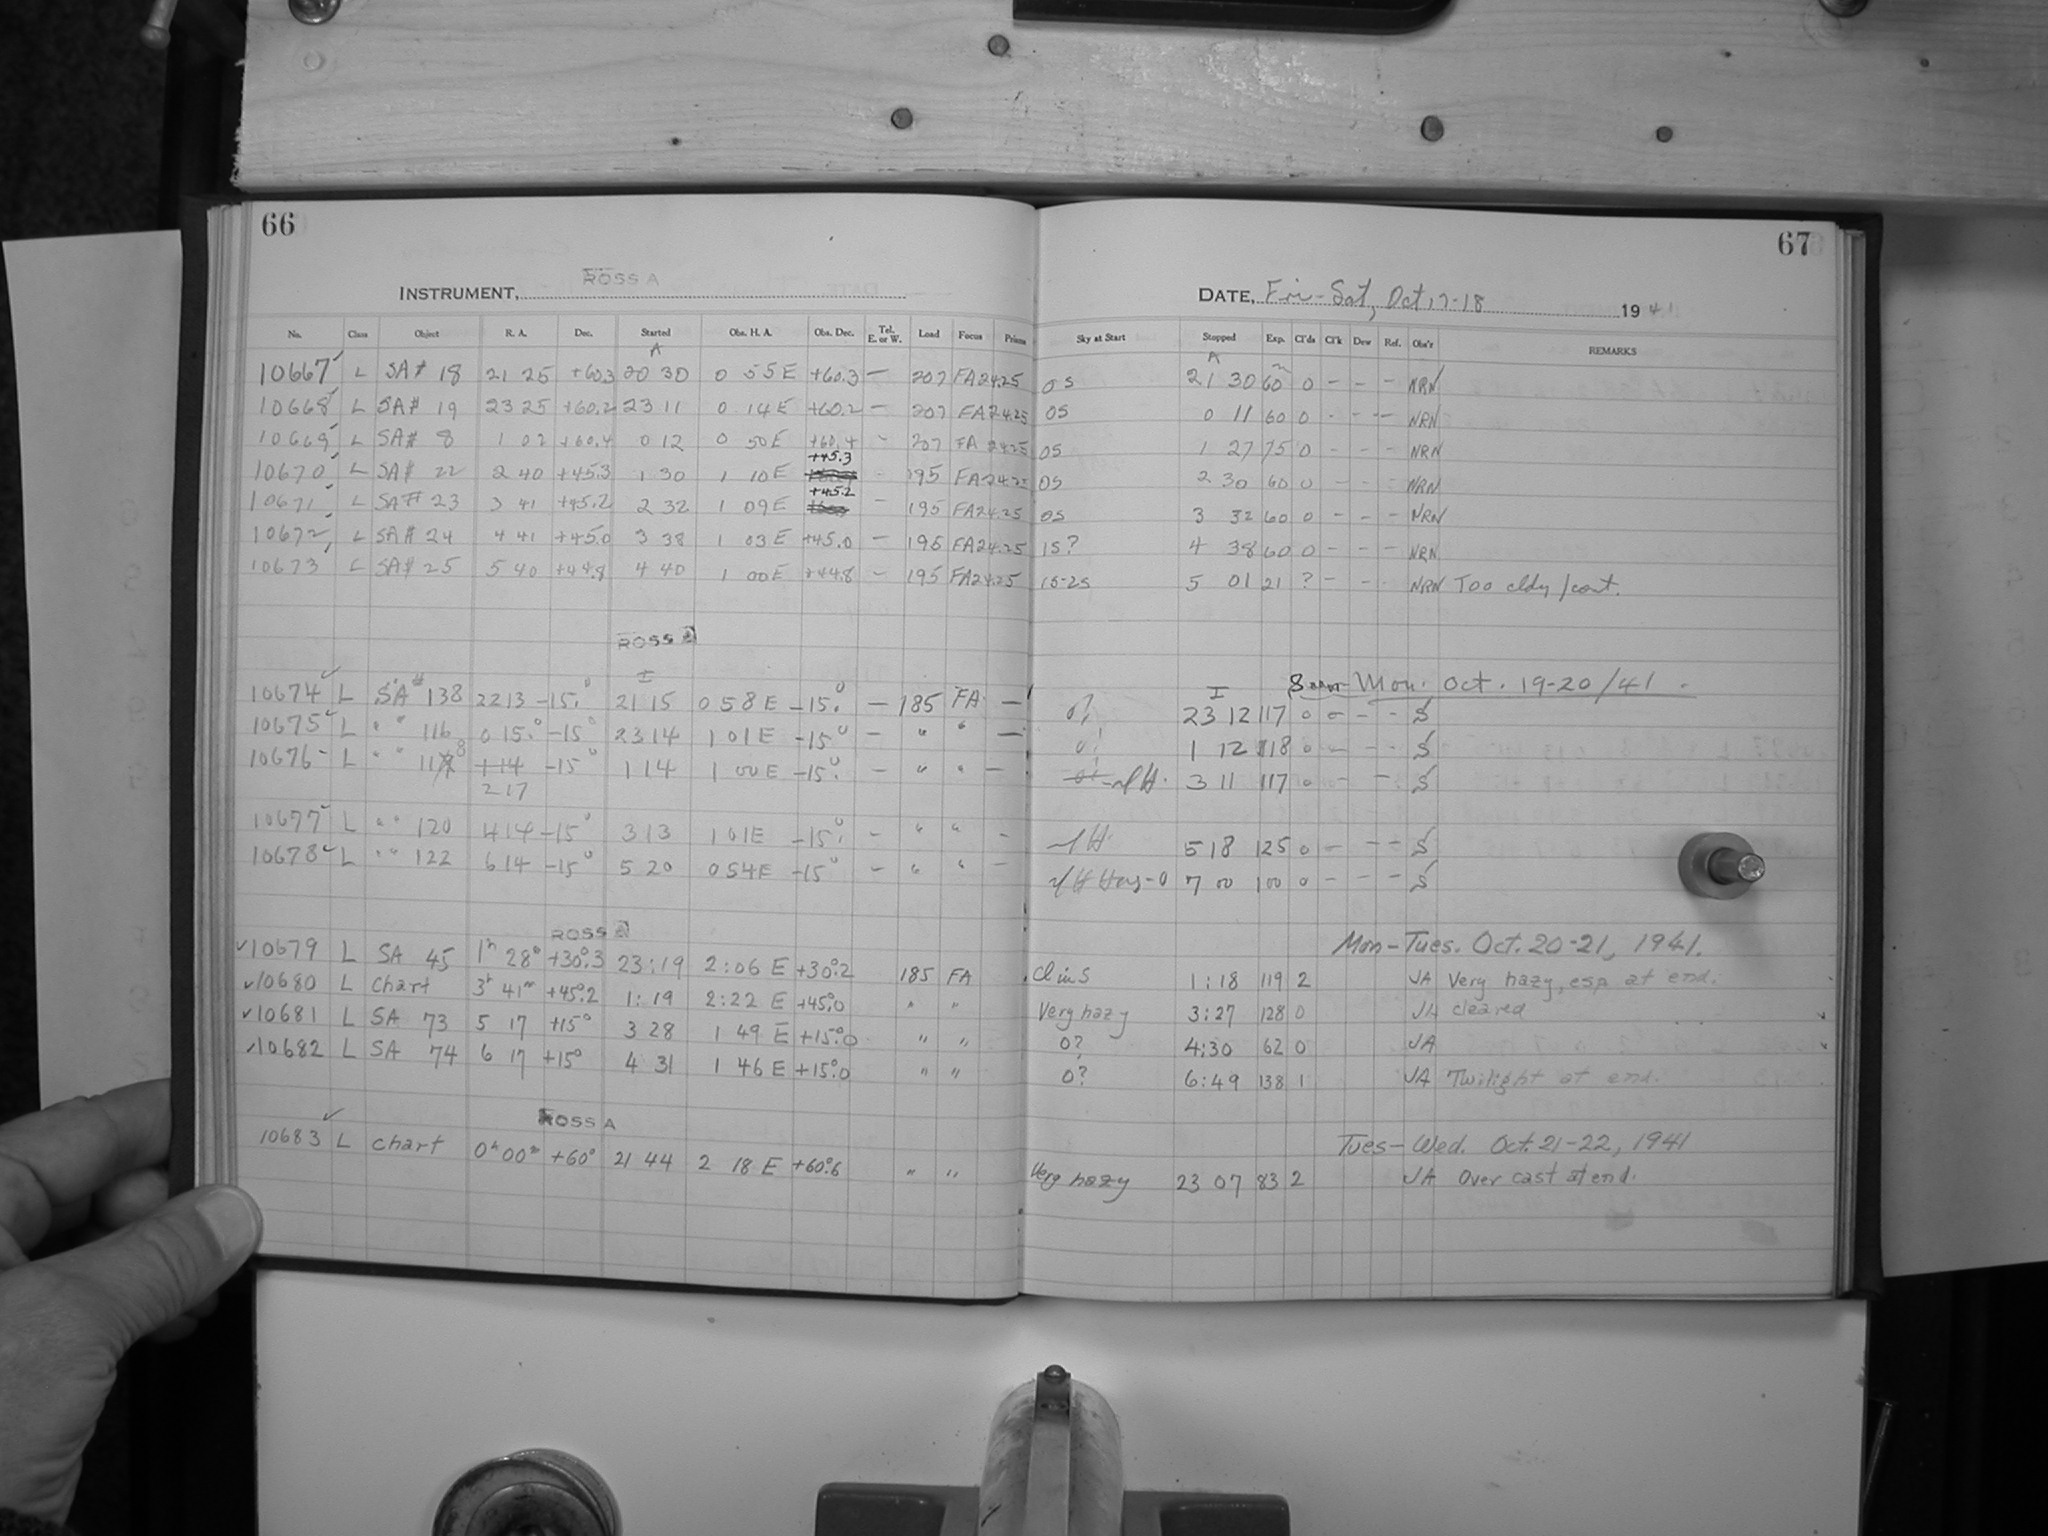 66
67
INSTRUMENT, ROSS A
DATE, Fri-Sat, Oct 17-18 1941
No. Class Object R. A. Dec. Started Obs. H. A. Obs. Dec. Tel. E. or W. Load Focus Prisms Sky at Start Stopped Exp. Cl'ds Cl'k Dew Ref. Obs'r REMARKS
A A
10667 L SA# 18 21 25 +60.3 20 30 0 55 E +60.3 — 207 FA24.25 0S 21 30 60m 0 - - - NRN
10668 L SA# 19 23 25 +60.2 23 11 0 14E +60.2 — 207 FA24.25 0S 0 11 60 0 - - - NRN
10669 L SA# 8 1 02 +60.4 0 12 0 50E +60.4 - 207 FA 24.25 0S 1 27 75 0 - - - NRN
10670 L SA# 22 2 40 +45.3 1 30 1 10E +45.3 - 195 FA24.25 0S 2 30 60 0 - - - NRN
10671 L SA# 23 3 41 +45.2 2 32 1 09E +45.2 - 195 FA24.25 0S 3 32 60 0 - - - NRN
10672 L SA# 24 4 41 +45.0 3 38 1 03E +45.0 — 195 FA24.25 1S? 4 38 60 0 - - - NRN
10673 L SA# 25 5 40 +44.8 4 40 1 00E +44.8 — 195 FA24.25 1S-2S 5 01 21 ? - - - NRN Too cldy/cont.
ROSS A
I I Mon. Oct. 19-20/41 -
10674 L SA# 138 22 13 -15.° 21 15 0 58 E -15.° — 185 FA — 0? 23 12 117 0 - - - S
10675 L " " 116 0 15.° -15° 23 14 1 01E -15° — " " — 0? 1 12 118 0 - - - S
10676 L " " 118 1 14 -15° 1 14 1 00E -15.° — " " — H. 3 11 117 0 - - S
2 17
10677 L " " 120 4 14 -15° 3 13 1 01E -15.° - " " - H. 5 18 125 0 - - - S
10678 L " " 122 6 14 -15° 5 20 0 54E -15° - " " - 7 00 100 0 - - - S
ROSS A
Mon-Tues. Oct. 20-21, 1941.
10679 L SA 45 1h 28m +30°.3 23:19 2:06 E +30°.2 185 FA Cl in S 1:18 119 2 JA Very hazy, esp at end.
10680 L Chart 3h 41m +45°.2 1:19 2:22 E +45°.0 " " Very hazy 3:27 128 0 JA cleared
10681 L SA 73 5 17 +15° 3 28 1 49 E +15°.0 " " 0? 4:30 62 0 JA
10682 L SA 74 6 17 +15° 4 31 1 46 E +15°.0 " " 0? 6:49 138 1 JA Twilight at end.
ROSS A
Tues-Wed. Oct. 21-22, 1941
10683 L Chart 0h 00m +60° 21 44 2 18 E +60°.6 " " Very hazy 23 07 83 2 JA Over cast at end.